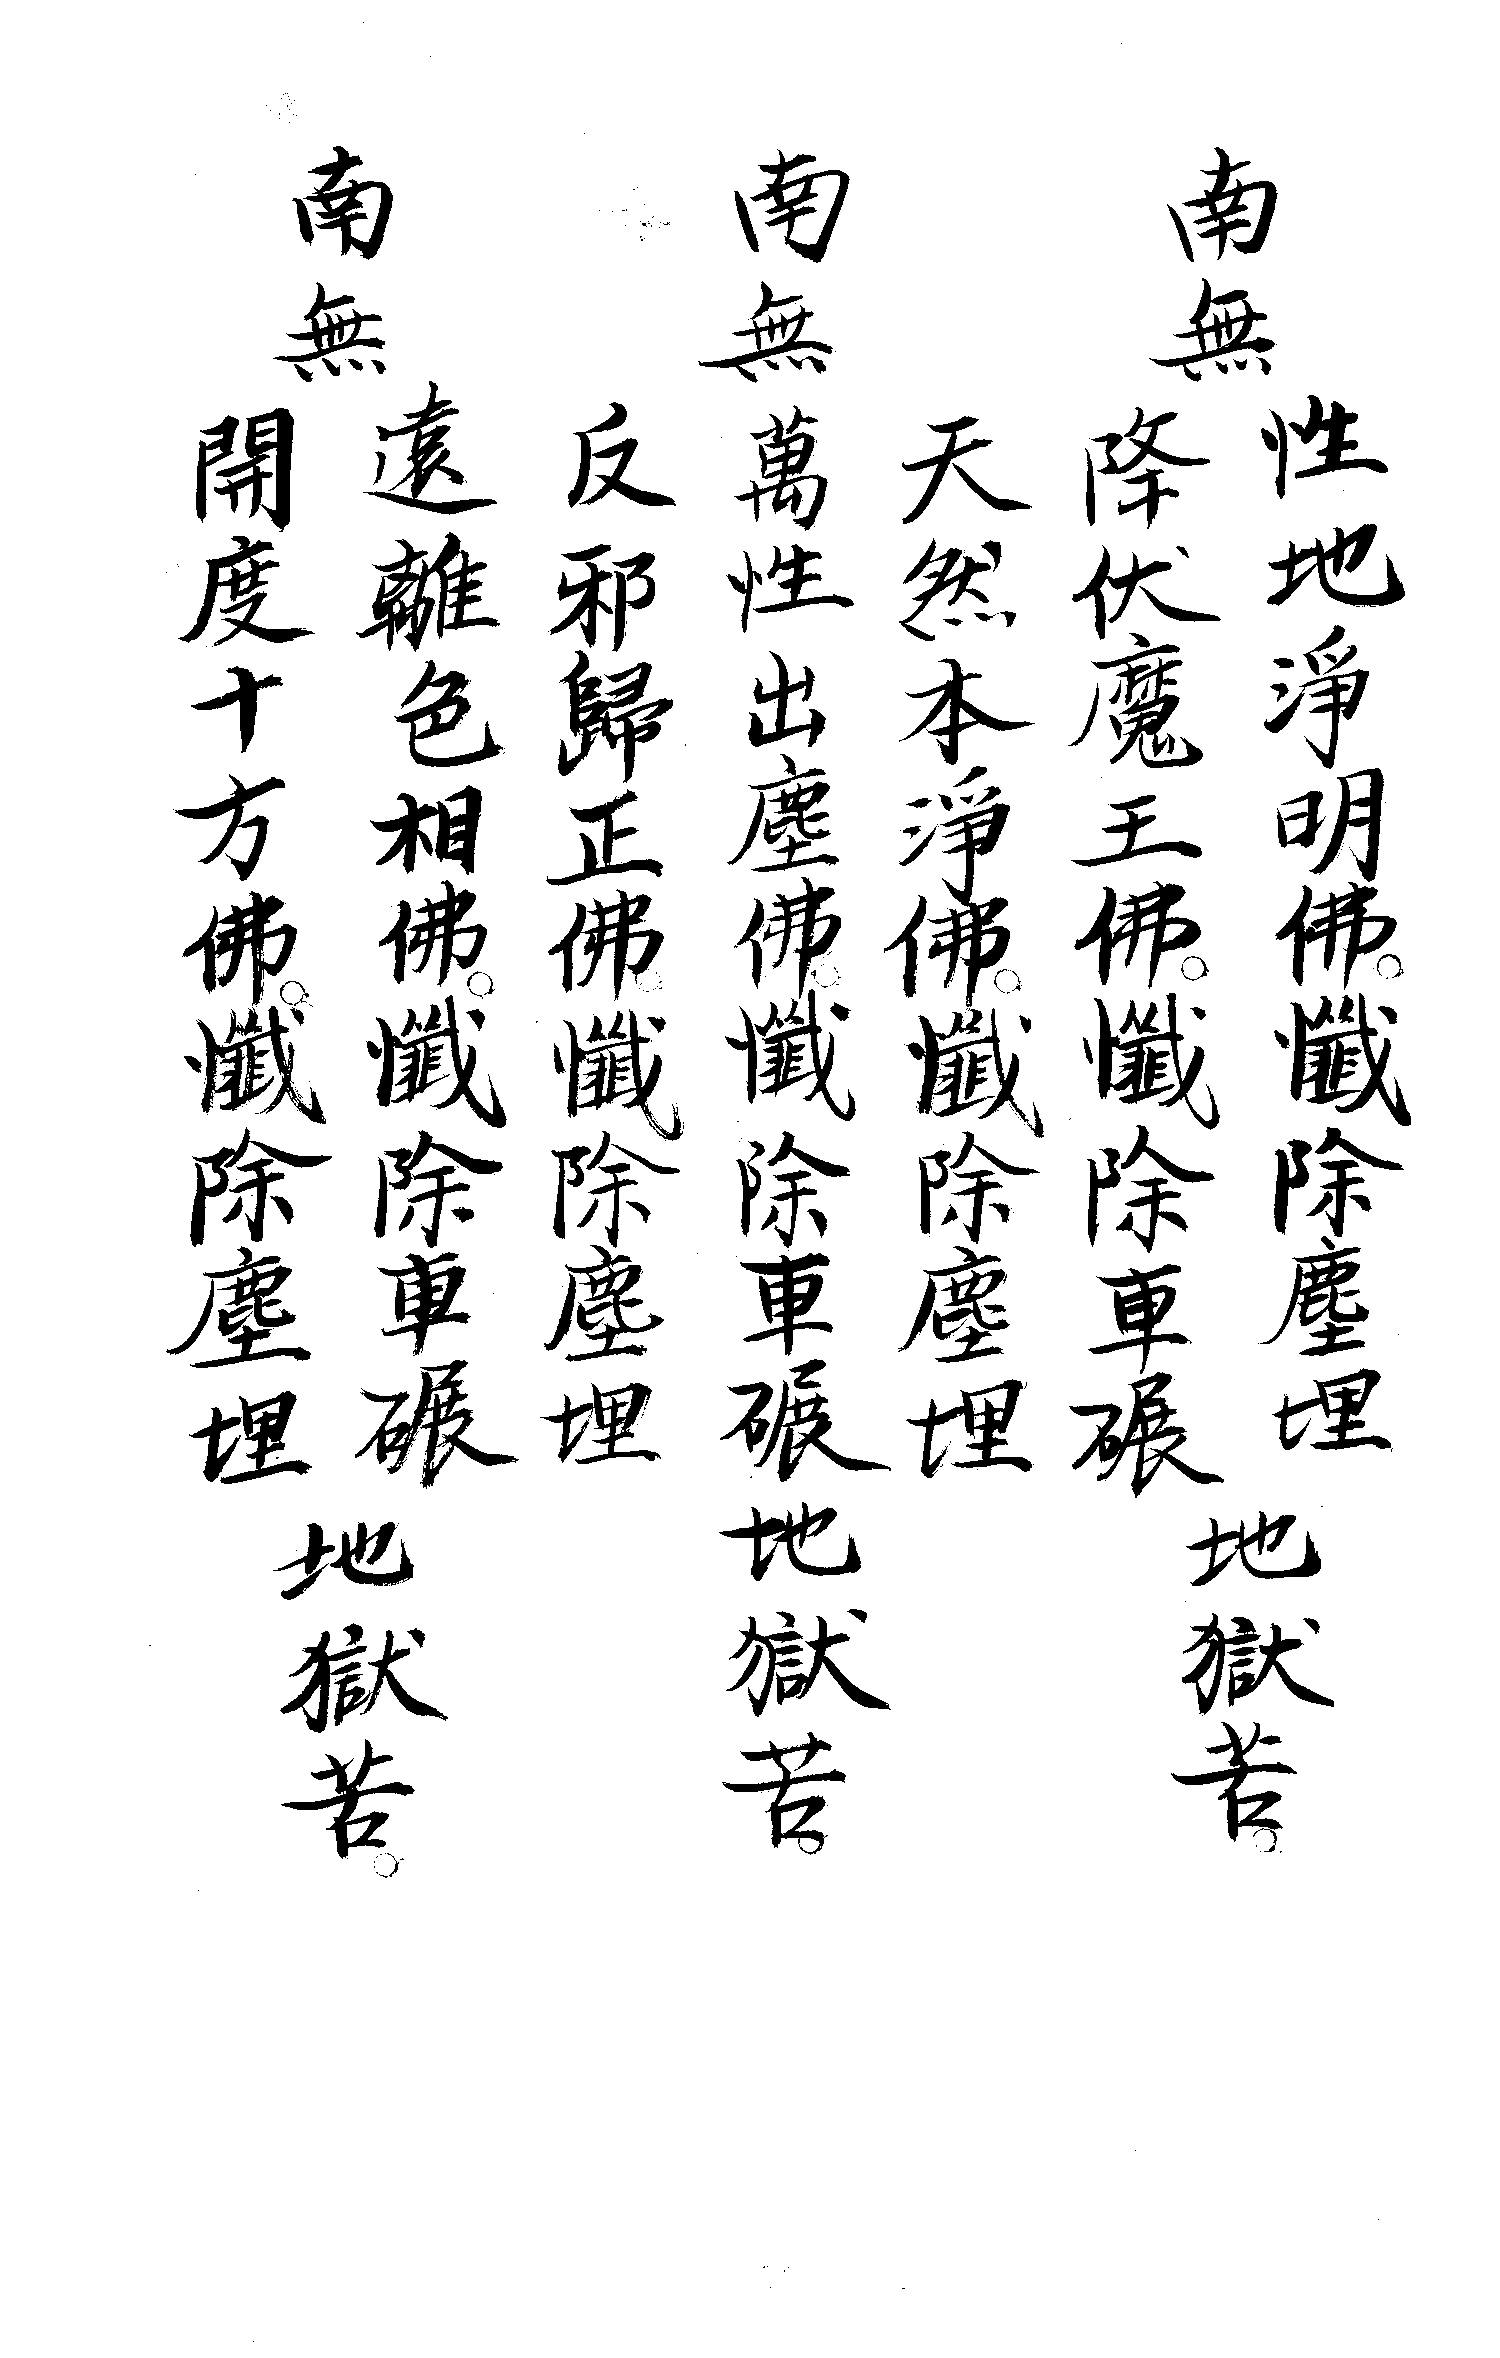 南無
性地淨明佛。懺除塵埋
降伏魔王佛。懺除車碾
地獄苦。
南無
天然本淨佛。懺除塵埋
萬性出塵佛。懺除車碾
反邪歸正佛。懺除塵埋
地獄苦。
南無
遠離色相佛。懺除車碾
開度十方佛。懺除塵埋
地獄苦。